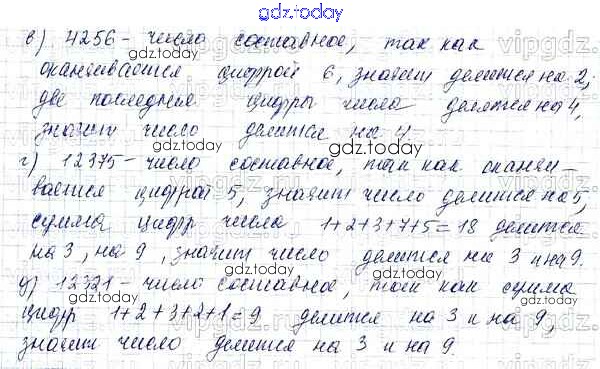 gdz.today
в) 4256 - число составное, так как
оканчивается цифрой 6, значит делится на 2,
две последние цифры числа делятся на 4,
значит число делится на 4.
г) 12375 - число составное, так как оканчи-
вается цифрой 5, значит число делится на 5,
сумма цифр числа 1+2+3+7+5=18 делится
на 3, на 9, значит число делится на 3 и на 9.
д) 12321 - число составное, так как сумма
цифр 1+2+3+2+1=9 делится на 3 и на 9,
значит число делится на 3 и на 9.
gdz.today